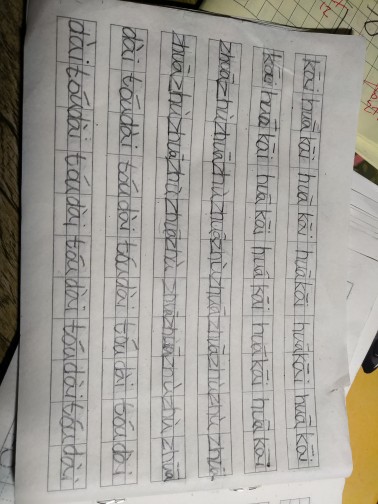 kāi huā kāi huā kāi huā kāi huā kāi huā kāi
kāi huā kāi huā kāi huā kāi huā kāi huā kāi
zhuāzhùzhuāzhùzhuāzhùzhuāzhùzhuāzhùzhuā
zhuāzhùzhuāzhùzhuāzhù zhuāzhùzhuāzhùzhuā
dài tóudài tóudài tóudài tóu dài tóudài
dàitóudài tóudài tóudài tóudàitóudài